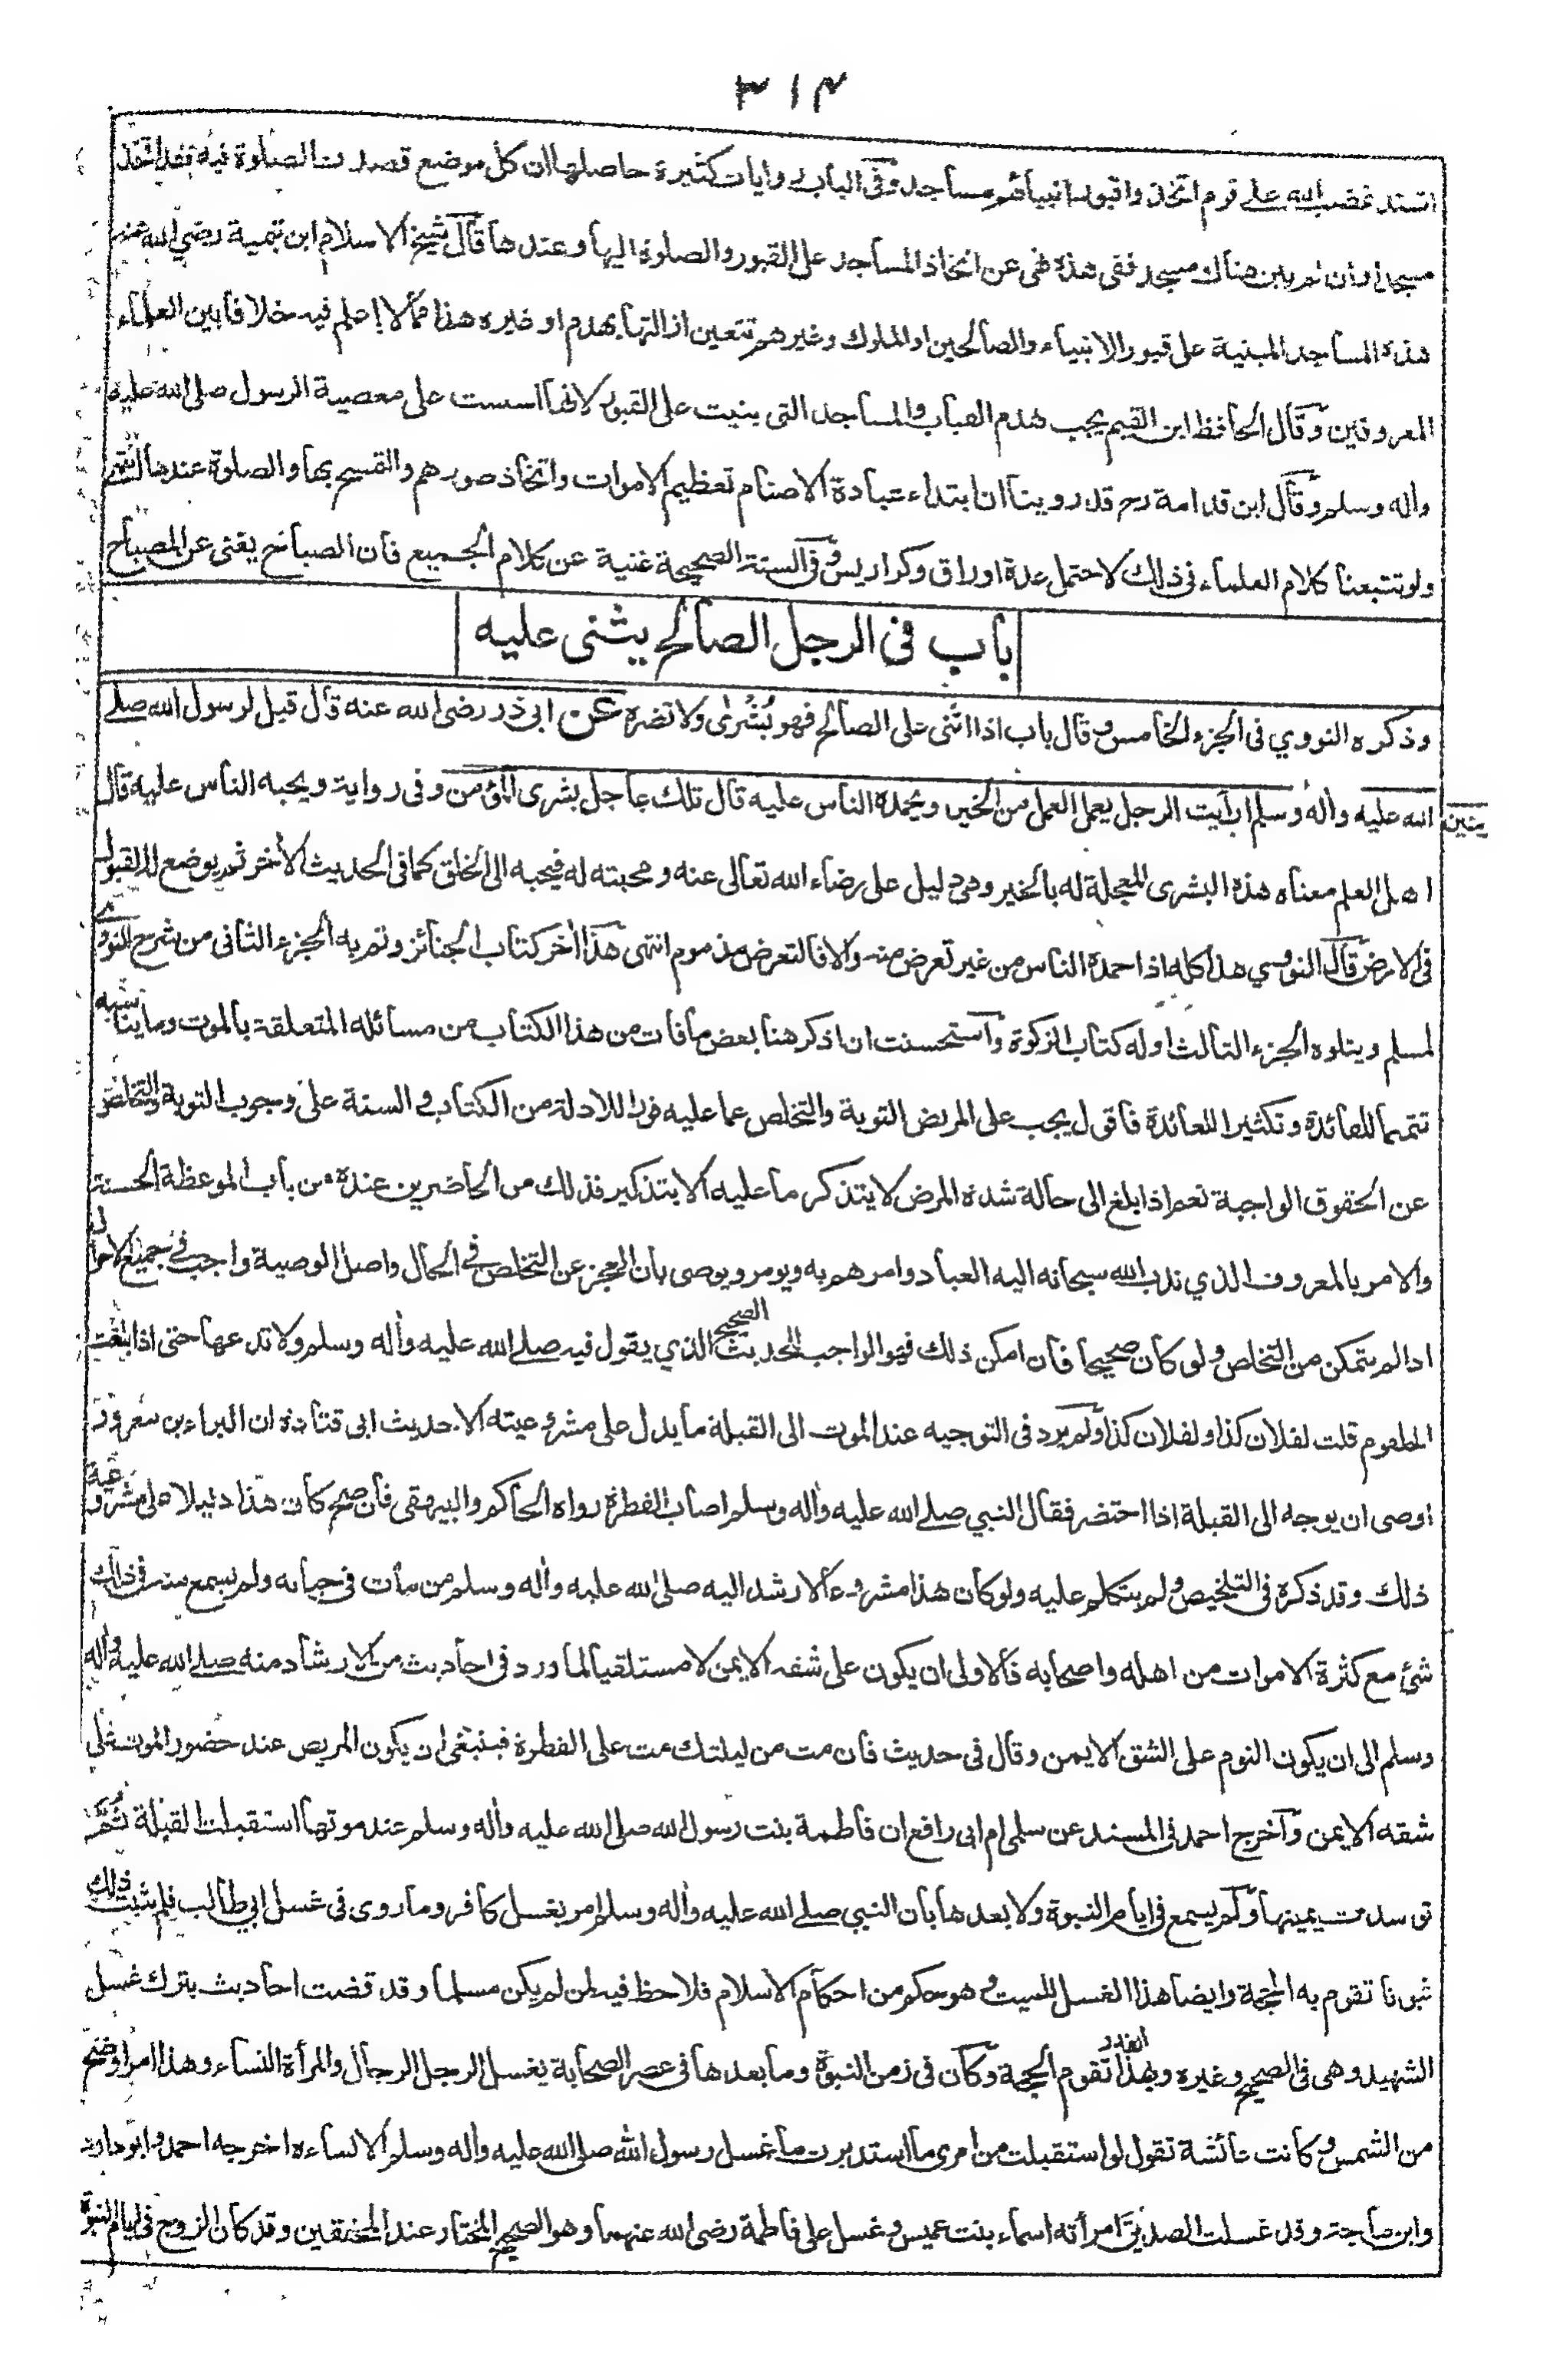 ٣١٤
اشتد غضب الله على قوم اتخذوا قبور انبيائهم مساجد وفي الباب روايات كثيرة حاصلها ان كل موضع قصدت الصلوة فيه فقد اتخذ
مسجدا وان لم يبن هناك مسجد ففى هذه نهى عن اتخاذ المساجد على القبور والصلوة اليها وعندها قال شيخ الاسلام ابن تيمية رضي الله عنه
هذه المساجد المبنية على قبور الانبياء والصالحين او الملوك وغيرهم تتعين ازالتها بهدم او غيره هذا مما لا اعلم فيه خلافا بين العلماء
المعروفين وقال الحافظ ابن القيم يجب هدم القباب والمساجد التى بنيت على القبور لانها اسست على معصية الرسول صلى الله عليه
واله وسلم وقال ابن قدامة رح قد روينا ان ابتداء عبادة الاصنام تعظيم الاموات واتخاذ صورهم والتمسح بها والصلوة عندها انتهى
ولو تتبعنا كلام العلماء فى ذلك لاحتمل عدة اوراق وكراريس وفى السنة الصحيحة غنية عن كلام الجميع فان الصباح يغنى عن المصباح
باب فى الرجل الصالح يثنى عليه
وذكره النووي فى الجزء الخامس وقال باب اذا اثنى على الصالح فهو بُشْرٰى ولا تضره عن ابى ذر رضى الله عنه قال قيل لرسول الله صلى
الله عليه واله وسلم ارأيت الرجل يعمل العمل من الخير ويحمده الناس عليه قال تلك عاجل بشرى المؤمن وفى رواية ويحبه الناس عليه قال
اهل العلم معناه هذه البشرى المعجلة له بالخير وهى دليل على رضاء الله تعالى عنه ومحبته له فيحببه الى الخلق كما فى الحديث الأخر ثم يوضع له القبول
فى الارض قال النووي هذا كله اذا حمده الناس من غير تعرض منه والا فالتعرض مذموم انتهى هذا أخر كتاب الجنائز وتم به الجزء الثانى من شرح النووي
لمسلم ويتلوه الجزء الثالث اوله كتاب الزكوة واستحسنت ان اذكر هنا بعض ما فات من هذا الكتاب من مسائله المتعلقة بالموت وما يناسبه
تتميما للفائدة وتكثيرا للعائدة فاقول يجب على المريض التوبة والتخلص عما عليه فورا للادلة من الكتاب والسنة على وجوب التوبة والتخلص
عن الحقوق الواجبة نعم اذا بلغ الى حالة شدة المرض لا يتذكر ما عليه الا بتذكير فذلك من الحاضرين عنده من باب الموعظة الحسنة
والامر بالمعروف الذي ندب الله سبحانه اليه العباد وامرهم به ويومر ويوصى بان العجز عن التخلص في الحال واصل الوصية واجب في جميع الاحوال
اذا لم يتمكن من التخلص ولو كان صحيحا فان امكن ذلك فهو الواجب للحديث الصحيح الذي يقول فيه صلى الله عليه واله وسلم ولا تدعها حتى اذا بلغت
الحلقوم قلت لفلان كذا ولفلان كذا ولم يرد فى التوجيه عند الموت الى القبلة ما يدل على مشروعيته الا حديث ابى قتادة ان البراء بن معرور
اوصى ان يوجه الى القبلة اذا احتضر فقال النبي صلى الله عليه واله وسلم اصاب الفطرة رواه الحاكم والبيهقى فان صح كان هذا دليلا على مشروعية
ذلك وقد ذكره فى التلخيص ولم يتكلم عليه ولو كان هذا مشروعا لارشد اليه صلى الله عليه واله وسلم من مات فى حياته ولم يسمع منه فى ذلك
شئ مع كثرة الاموات من اهله واصحابه فالاولى ان يكون على شقه الايمن لا مستلقيا لما ورد فى احاديث من الارشاد منه صلى الله عليه واله
وسلم الى ان يكون النوم على الشق الايمن وقال فى حديث فان مت من ليلتك مت على الفطرة فينبغى ان يكون المريض عند حضور الموت على
شقه الايمن وأخرج احمد فى المسند عن سلمى ام ابى رافع ان فاطمة بنت رسول الله صلى الله عليه واله وسلم عند موتها استقبلت القبلة ثم
توسدت يمينها ولم يسمع فى ايام النبوة ولا بعدها بان النبي صلى الله عليه واله وسلم امر بغسل كافر وما روى فى غسل ابي طالب فلم يثبت ذلك
ثبوتا تقوم به الحجة وايضا هذا الغسل للميت وهو حكم من احكام الاسلام فلا حظ فيه لمن لم يكن مسلما وقد قضت احاديث بترك غسل
الشهيد وهى فى الصحيح وغيره وبهذا القدر تقوم الحجة وكان فى زمن النبوة وما بعدها فى عصر الصحابة يغسل الرجل الرجال والمرأة النساء وهذا امر اوضح
من الشمس وكانت عائشة تقول لو استقبلت من امرى ما استدبرت ما غسل رسول الله صلى الله عليه واله وسلم الا نساءه اخرجه احمد وابو داود
وابن ماجة وقد غسلت الصديق امرأته اسماء بنت عميس وغسل على فاطمة رضى الله عنهما وهو الصحيح المختار عند المحققين وقد كان الزوج فى ايام النبوة